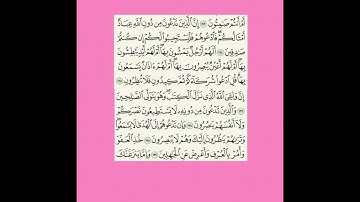 أَمْ أَنتُمْ صَٰمِتُونَ ١٩٣ إِنَّ ٱلَّذِينَ تَدْعُونَ مِن دُونِ ٱللَّهِ عِبَادٌ
أَمْثَالُكُمْ فَٱدْعُوهُمْ فَلْيَسْتَجِيبُوا۟ لَكُمْ إِن كُنتُمْ
صَٰدِقِينَ ١٩٤ أَلَهُمْ أَرْجُلٌ يَمْشُونَ بِهَآ أَمْ لَهُمْ أَيْدٍ يَبْطِشُونَ
بِهَآ أَمْ لَهُمْ أَعْيُنٌ يُبْصِرُونَ بِهَآ أَمْ لَهُمْ ءَاذَانٌ يَسْمَعُونَ
بِهَا قُلِ ٱدْعُوا۟ شُرَكَآءَكُمْ ثُمَّ كِيدُونِ فَلَا تُنظِرُونِ ١٩٥
إِنَّ وَلِـِّۧىَ ٱللَّهُ ٱلَّذِى نَزَّلَ ٱلْكِتَٰبَ وَهُوَ يَتَوَلَّى ٱلصَّٰلِحِينَ
١٩٦ وَٱلَّذِينَ تَدْعُونَ مِن دُونِهِۦ لَا يَسْتَطِيعُونَ نَصْرَكُمْ
وَلَآ أَنفُسَهُمْ يَنصُرُونَ ١٩٧ وَإِن تَدْعُوهُمْ إِلَى ٱلْهُدَىٰ لَا يَسْمَعُوا۟
وَتَرَىٰهُمْ يَنظُرُونَ إِلَيْكَ وَهُمْ لَا يُبْصِرُونَ ١٩٨ خُذِ ٱلْعَفْوَ
وَأْمُرْ بِٱلْعُرْفِ وَأَعْرِضْ عَنِ ٱلْجَٰهِلِينَ ١٩٩ وَإِمَّا يَنزَغَنَّكَ